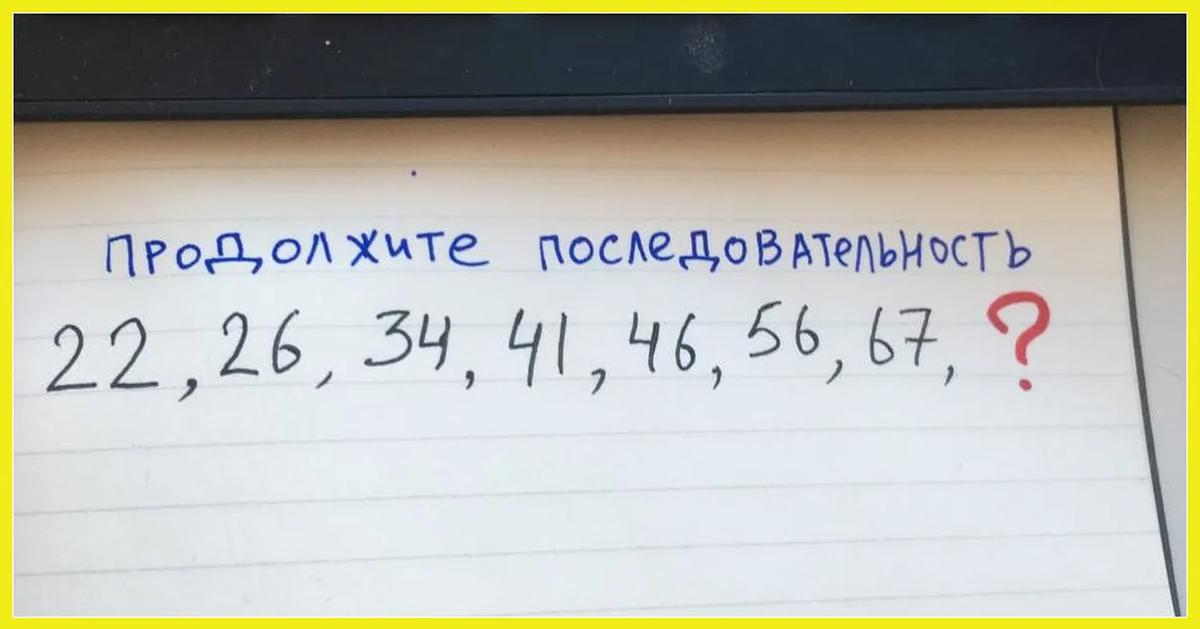 ПРОДОЛЖИТЕ ПОСЛЕДОВАТЕЛЬНОСТЬ
22, 26, 34, 41, 46, 56, 67, ?